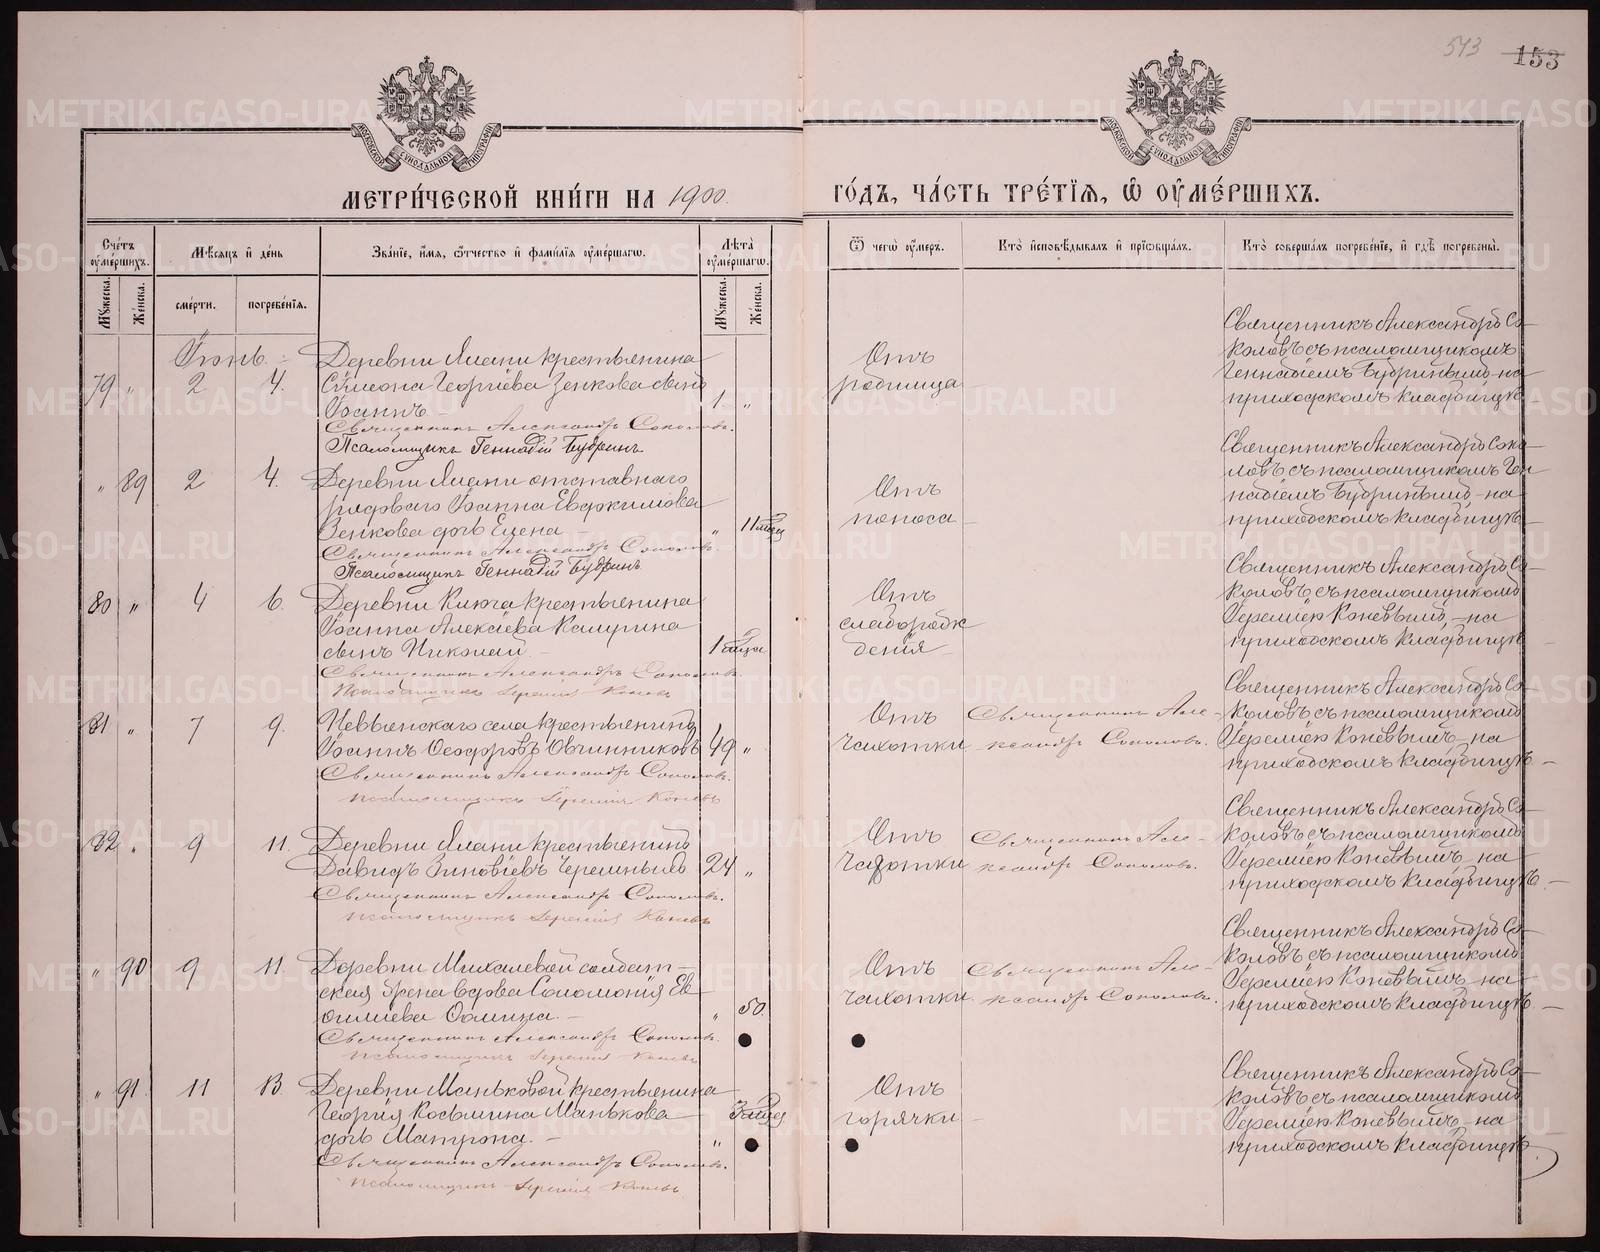 543 153
МОСКОВСКОЙ СУНОДАЛЬНОЙ ТИПОГРАФІИ
МОСКОВСКОЙ СУНОДАЛЬНОЙ ТИПОГРАФІИ
МЕТРИ́ЧЕСКОЙ КНИ́ГИ НА 1900 ГО́ДЪ, ЧА́СТЬ ТРЕ́ТІЯ, Ѽ ОУМЕ́РШИХЪ.
Сче́тъ оуме́ршихъ.
Мѣ́сяцъ и҆ де́нь
Зва́ніе, и҆́мя, ѻ҆́тчество и҆ фами́лія оуме́ршагѡ.
Лѣ́та оуме́ршагѡ.
Ѿ чегѡ̀ оу́меръ.
Кто̀ и҆сповѣ́дывалъ и҆ прїѡбща́лъ.
Кто̀ соверша́лъ погребе́ніе, и҆ гдѣ̀ погребены̀.
Мꙋ́жеска. Же́нска. сме́рти. погребе́нія. Мꙋ́жеска. Же́нска.
Іюнь.
79 " 2 4.
Деревни Ялани крестьянина
Симеона Георгіева Зенкова сынъ
Іоаннъ 1 "
Священникъ Александръ Соколовъ.
Псаломщикъ Геннадій Будринъ
Отъ
родимца
Священникъ Александръ Со-
коловъ съ псаломщикомъ
Геннадіемъ Будринымъ на
приходскомъ кладбищѣ
" 89 2 4.
Деревни Ялани отставнаго
рядоваго Іоанна Евдокимова
Зенкова дочь Елена " 11 мѣсяц
Священникъ Александръ Соколовъ
Псаломщикъ Геннадій Будринъ
Отъ
поноса
Священникъ Александръ Соко-
ловъ съ псаломщикомъ Ген-
надіемъ Будринымъ на
приходскомъ кладбищѣ
80 " 4 6.
Деревни Ключа крестьянина
Іоанна Алексіева
сынъ Николай
Священникъ Александръ Соколовъ.
Псаломщикъ Іеремія Коневъ
Отъ
слаборож
денія
Священникъ Александръ Со-
коловъ съ псаломщикомъ
Іереміею Коневымъ, на
приходскомъ кладбищѣ
81 " 7 9.
Невьянскаго села крестьянинъ
Іоаннъ Ѳеодоровъ Овчинниковъ 49 "
Священникъ Александръ Соколовъ.
Псаломщикъ Іеремія Коневъ
Отъ
чахотки
Священникъ Але-
ксандръ Соколовъ.
Священникъ Александръ Со-
коловъ съ псаломщикомъ
Іереміею Коневымъ на
приходскомъ кладбищѣ
82 " 9 11.
Деревни Ялани крестьянинъ
Давидъ Зиновіевъ Черемныхъ 24 "
Священникъ Александръ Соколовъ.
Псаломщикъ Іеремія Коневъ
Отъ
чахотки
Священникъ Але-
ксандръ Соколовъ.
Священникъ Александръ Со-
коловъ съ псаломщикомъ
Іереміею Коневымъ на
приходскомъ кладбищѣ
" 90 9 11.
Деревни Михалевой солдат-
ская жена вдова Соломонія Ев
" 50.
Священникъ Александръ Соколовъ.
Псаломщикъ Іеремія Коневъ
Отъ
чахотки
Священникъ Але-
ксандръ Соколовъ.
Священникъ Александръ Со-
коловъ съ псаломщикомъ
Іереміею Коневымъ на
приходскомъ кладбищѣ
" 91. 11 13.
Деревни Маньковой крестьянина
Георгія Косьмина Манькова
дочь Матрона. "
Священникъ Александръ Соколовъ.
Псаломщикъ Іеремія Коневъ
Отъ
горячки
Священникъ Александръ Со-
коловъ съ псаломщикомъ
Іереміею Коневымъ на
приходскомъ кладбищѣ
METRIKI.GASO-URAL.RU